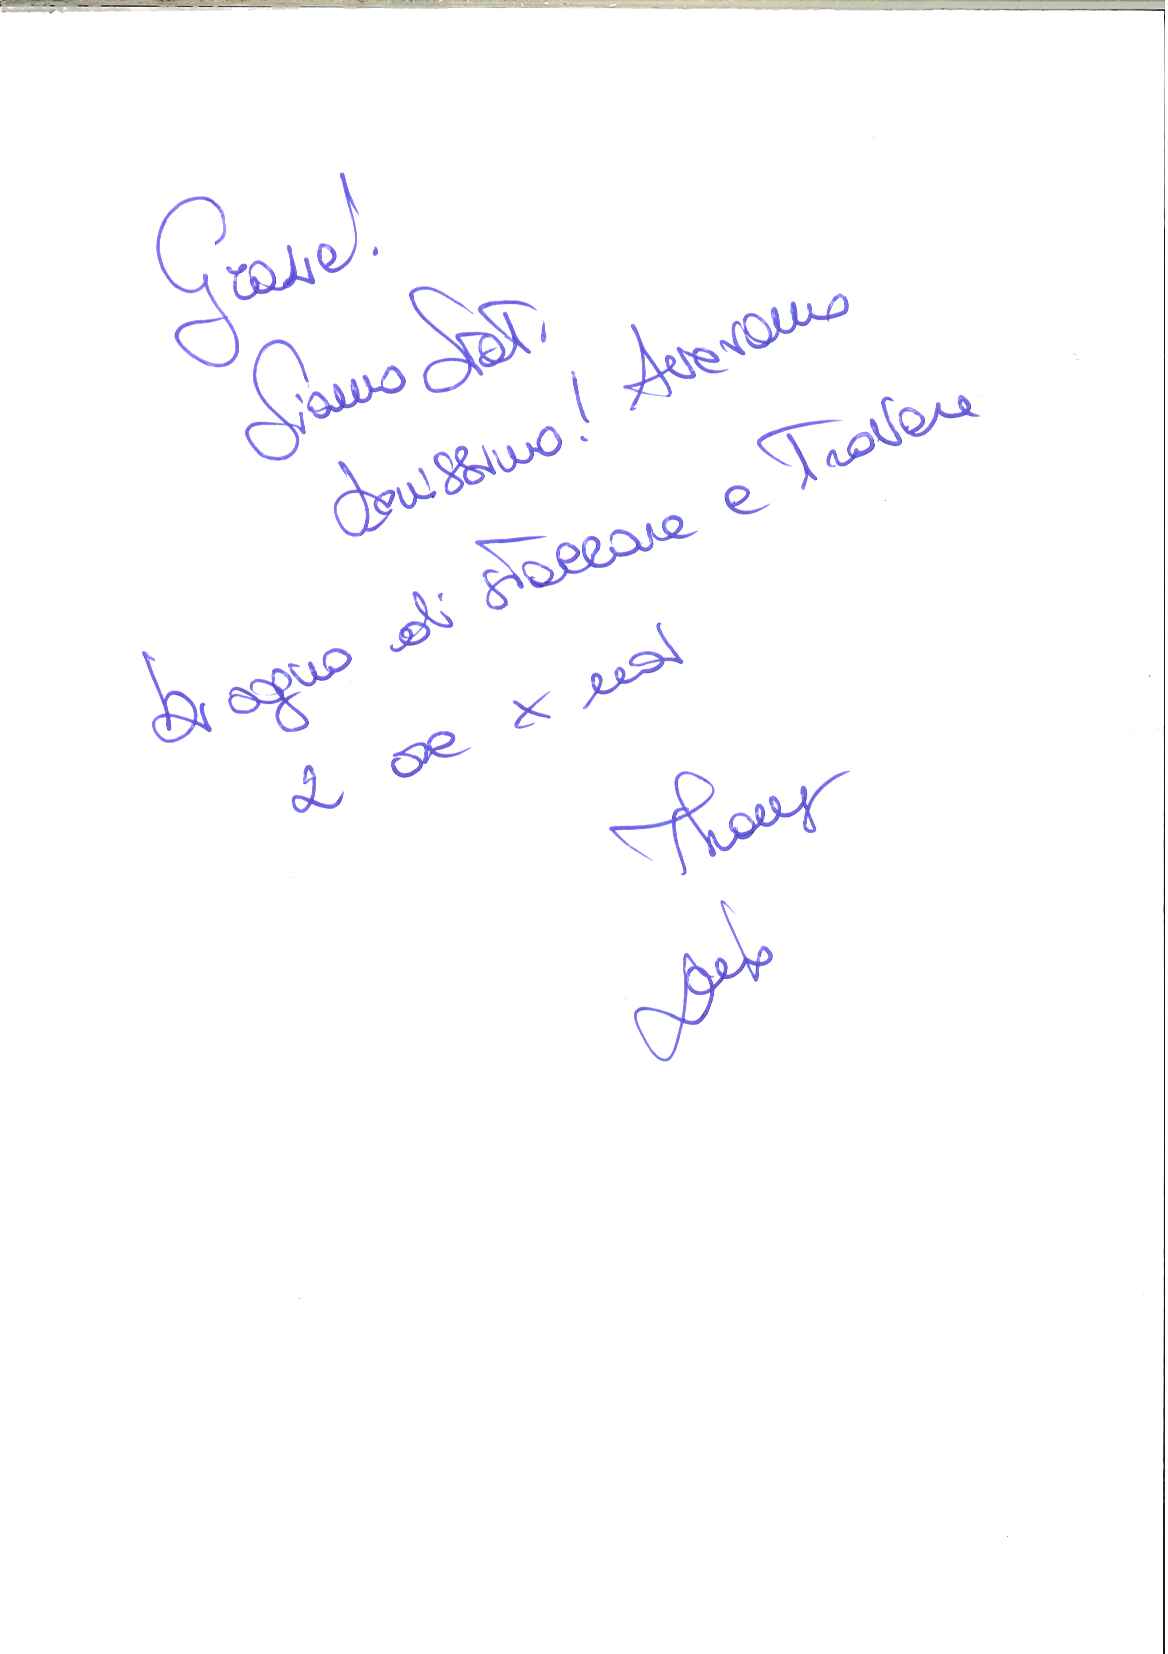 Grazie!
Siamo Stati
benissimo! Avevamo
bisogno di staccare e Trovare
2 ore x noi